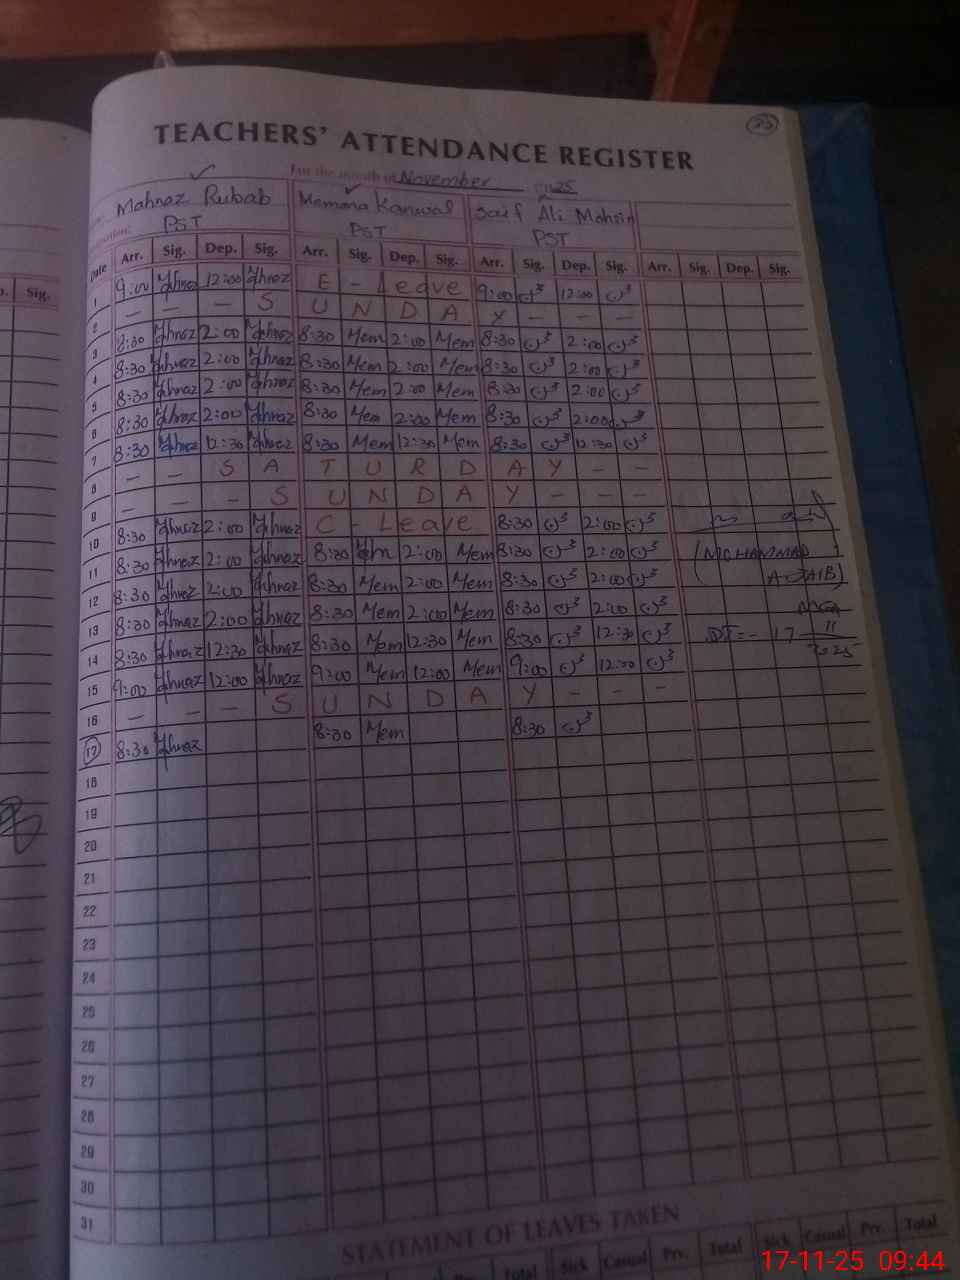 23
TEACHERS' ATTENDANCE REGISTER
For the month of November 2025
Mahnaz Rubab Memona Kanwal Saif Ali Mohsin
PST PST PST
Date Arr. Sig. Dep. Sig. Arr. Sig. Dep. Sig. Arr. Sig. Dep. Sig. Arr. Sig. Dep. Sig.
Sig.
1 9:00 Mhnaz 12:00 Mhnaz E - Leave 9:00 12:00
2 - - - S U N D A Y - - -
3 8:30 Mhnaz 2:00 Mhnaz 8:30 Mem 2:00 Mem 8:30 2:00
4 8:30 Mhnaz 2:00 Mhnaz 8:30 Mem 2:00 Mem 8:30 2:00
5 8:30 Mhnaz 2:00 Mhnaz 8:30 Mem 2:00 Mem 8:30 2:00
6 8:30 Mhnaz 2:00 Mhnaz 8:30 Mem 2:00 Mem 8:30 2:00
7 8:30 Mhnaz 12:30 Mhnaz 8:30 Mem 12:30 Mem 8:30 12:30
8 - - S A T U R D A Y - -
9 - - - S U N D A Y - - -
10 8:30 Mhnaz 2:00 Mhnaz C - Leave 8:30 2:00
11 8:30 Mhnaz 2:00 Mhnaz 8:30 Mem 2:00 Mem 8:30 2:00
(MOHAMMAD
12 8:30 Mhnaz 2:00 Mhnaz 8:30 Mem 2:00 Mem 8:30 2:00
13 8:30 Mhnaz 2:00 Mhnaz 8:30 Mem 2:00 Mem 8:30 2:00
14 8:30 Mhnaz 12:30 Mhnaz 8:30 Mem 12:30 Mem 8:30 12:30
17 11 2025
15 9:00 Mhnaz 12:00 Mhnaz 9:00 Mem 12:00 Mem 9:00 12:00
16 - - - S U N D A Y - - -
17 8:30 Mhnaz 8:30 Mem 8:30
18
19
20
21
22
23
24
25
26
27
28
29
30
31
STATEMENT OF LEAVES TAKEN
Total Sick Casual Prv. Total Sick Casual Prv. Total
17-11-25 09:44